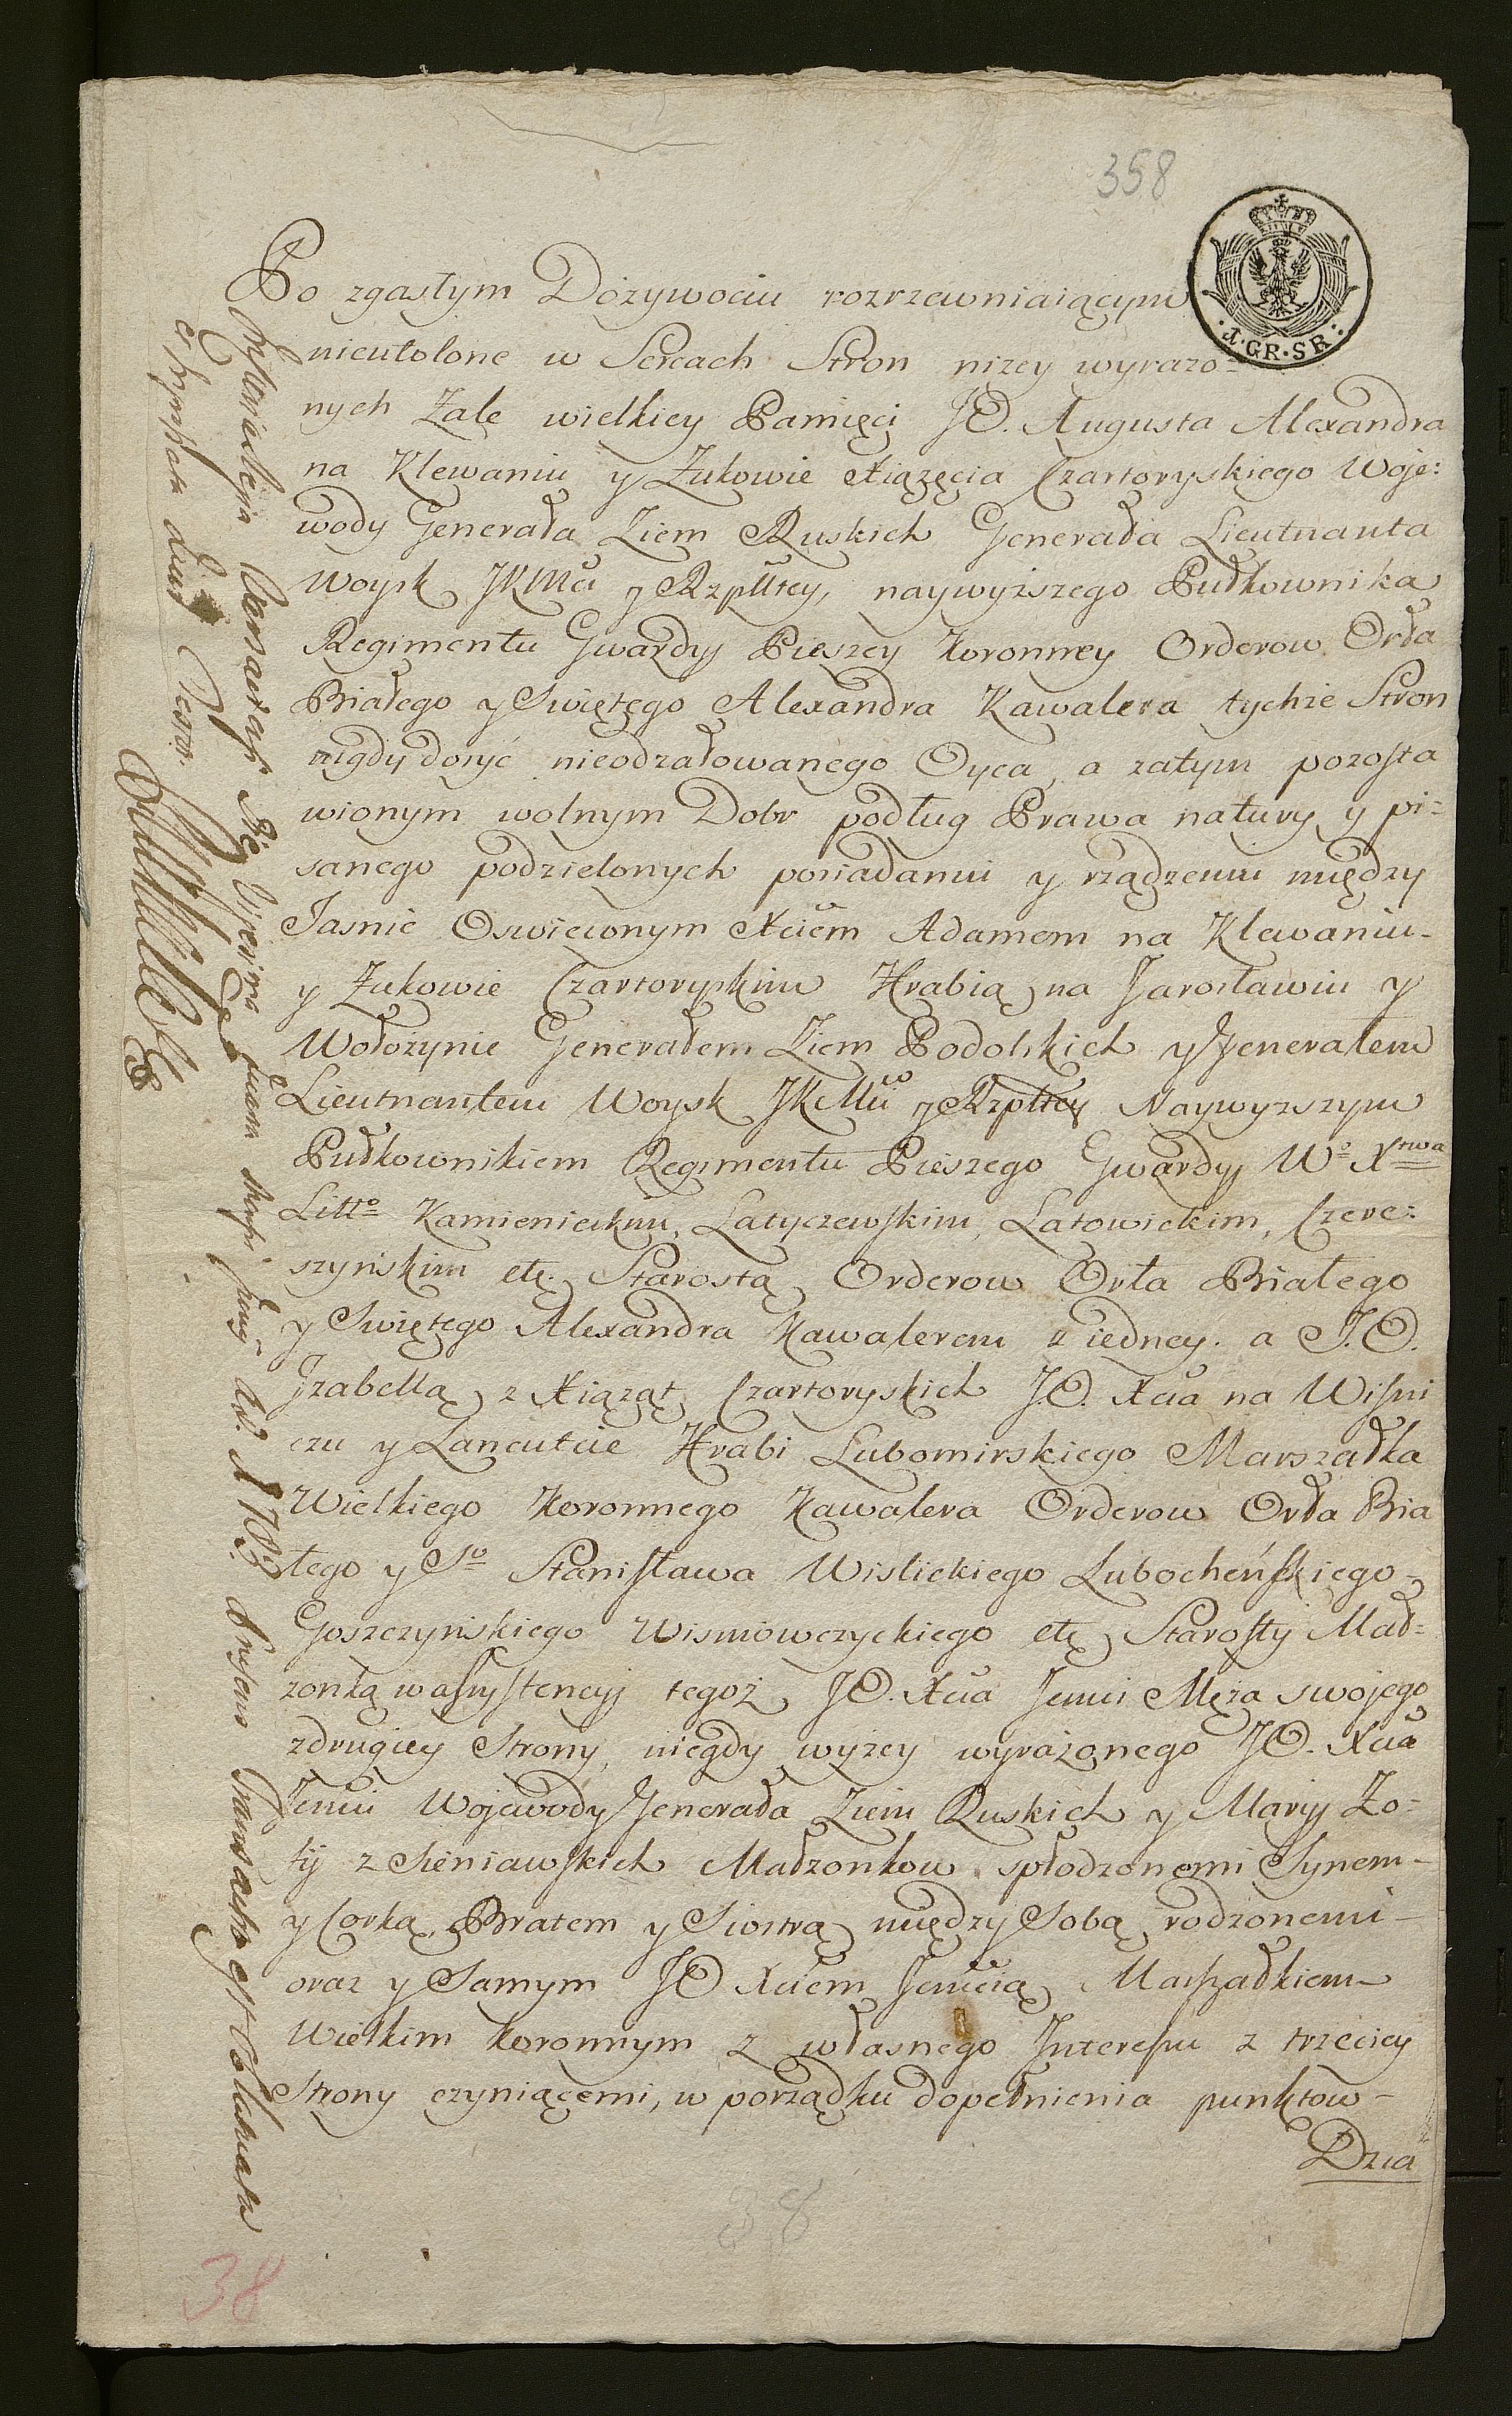 358
1·GR·SR·
Po zgasłym Dozywociu rozrzewniaiącym
nieutolone w Sercach Stron nizey wyrazo=
nych Zale wielkiey Pamięci JO. Augusta Alexandra
na Klewaniu y Zukowie Xiązęcia Czartoryskiego Woje=
wody Generała Ziem Ruskich Generała Lieutnanta
Woysk JKMci y Rzplltey, naywyzszego Pułkownika
Regimentu Gwardyj Pieszey Koronney Orderow Orła
Białego y Swiętego Alexandra Kawalera tychze Stron
nigdy dosyć nieodzałowanego Oyca, a zatym pozosta
wionym wolnym Dobr podług Prawa natury y pi=
sanego podzielonych posiadaniu y rządzeniu między
Jasnie Oswieconym Xciem Adamem na Klewaniu-
y Zukowie Czartoryskim Hrabią na Jarosławiu y
Wołozynie Generałem Ziem Podolskich y Jenerałem
Lieutnantem Woysk JKMci y Rzpltey Naywyzszym
Pułkownikiem Regimentu Pieszego Gwardyj Wo Xtwa
Litto Kamienieckim, Latyczewskim, Latowickim, Czere=
szyńskim etc. Starostą Orderow Orła Białego
y Swiętego Alexandra Kawalerem z iedney. a J.O.
Jzabellą z Xiąząt Czartoryskich J.O. Xcia na Wisni
czu y Lancutcie Hrabi Lubomirskiego Marszałka
Wielkiego Koronnego Kawalera Orderow Orła Bia
łego y So Stanisława Wislickiego Lubocheńskiego-
Goszczyńskiego Wismowczyckiego etc Starosty Mał=
zonką w assystencyj tegoż JO. Xcia Jemci Męza swojego
z drugiey Strony, niegdy wyżey wyrażonego JO. Xcia
Jemci Wojewody Jenerała Ziem Ruskich y Maryj Zo=
fij z Sieniawskich Małzonkow spłodzonemi Synem-
y Corką, Bratem y Siostrą między Sobą rodzonemi-
oraz y Samym JO Xciem Jemcią Marszałkiem
Wielkim Koronnym z własnego Jnteressu z trzeciey
Strony czyniącemi, w porządku dopełnienia punktow-
Dzia
38
38